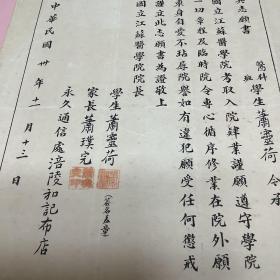 具志願書
醫科 班 學生蕭靈荷 今承
國立江蘇醫學院考取入院肄業謹願遵守學院
一切章程及臨時院令專心循序修業在院外願
束身自愛不玷辱院譽如有違犯願受任何懲戒
謹立此志願書為證敬上
國立江蘇醫學院院長
學生蕭靈荷
家長蕭璞完
(簽名蓋章)
永久通信處涪陵和記布店
中華民國卅年十一月十三日